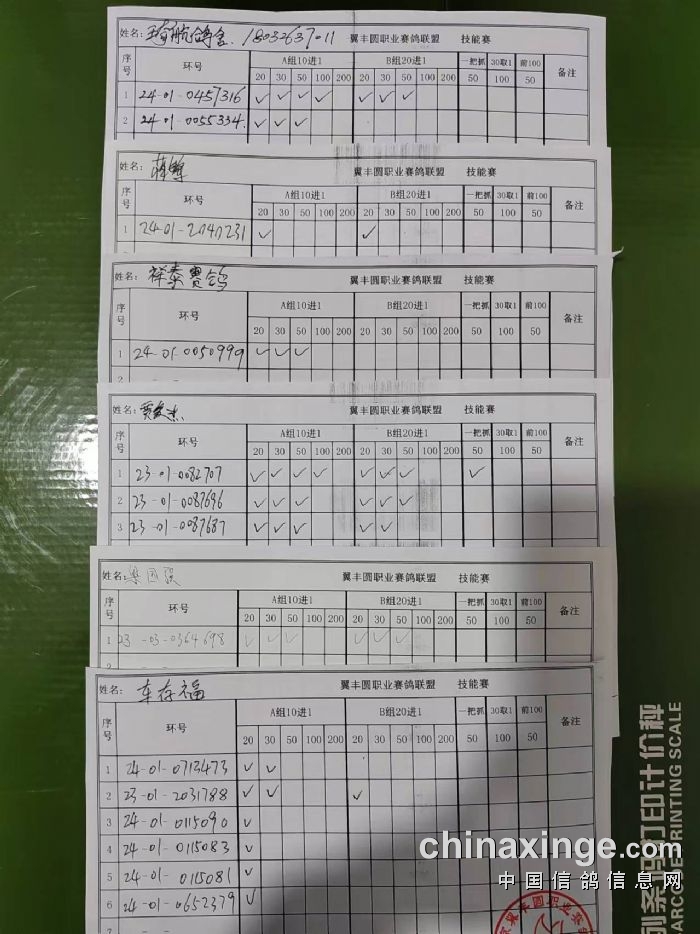 姓名: 航鸽舍 18032637011 翼丰圆职业赛鸽联盟 技能赛
序号 环号 A组10进1 B组20进1 一把抓 30取1 前100 备注
20 30 50 100 200 20 30 50 100 200 50 100 50
1 24-01-0457316 ✓ ✓ ✓ ✓ ✓ ✓ ✓
2 24-01-0055334 ✓ ✓ ✓
姓名: 翼丰圆职业赛鸽联盟 技能赛
序号 环号 A组10进1 B组20进1 一把抓 30取1 前100 备注
20 30 50 100 200 20 30 50 100 200 50 100 50
1 24-01-2040231 ✓ ✓
姓名: 祥泰赛鸽 翼丰圆职业赛鸽联盟 技能赛
序号 环号 A组10进1 B组20进1 一把抓 30取1 前100 备注
20 30 50 100 200 20 30 50 100 200 50 100 50
1 24-01-0050999 ✓ ✓ ✓
姓名: 翼丰圆职业赛鸽联盟 技能赛
序号 环号 A组10进1 B组20进1 一把抓 30取1 前100 备注
20 30 50 100 200 20 30 50 100 200 50 100 50
1 23-01-0082707 ✓ ✓ ✓ ✓ ✓ ✓ ✓ ✓
2 23-01-0087696 ✓ ✓ ✓ ✓ ✓ ✓
3 23-01-0087687 ✓ ✓ ✓ ✓ ✓
姓名: 梁国强 翼丰圆职业赛鸽联盟 技能赛
序号 环号 A组10进1 B组20进1 一把抓 30取1 前100 备注
20 30 50 100 200 20 30 50 100 200 50 100 50
1 23-03-0364698 ✓ ✓ ✓ ✓ ✓ ✓
姓名: 车存福 翼丰圆职业赛鸽联盟 技能赛
序号 环号 A组10进1 B组20进1 一把抓 30取1 前100 备注
20 30 50 100 200 20 30 50 100 200 50 100 50
1 24-01-0713473 ✓ ✓
2 23-01-2031788 ✓ ✓ ✓
3 24-01-0115090 ✓
4 24-01-0115083 ✓
5 24-01-0115081 ✓
6 24-01-0652379 ✓
翼丰圆职业赛
列条码打印计价秤
BARCODE PRINTING SCALE
chinaxinge.com
中国信鸽信息网